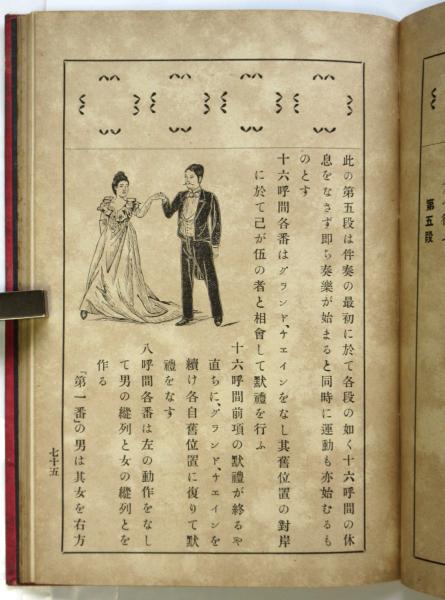 第五段
此の第五段は伴奏の最初に於て各段の如く十六呼間の休
息をなさず即ち奏樂が始まると同時に運動も亦始むるも
のとす
十六呼間各番はグランド、チエインをなし其舊位置の對岸
に於て己が伍の者と相會して默禮を行ふ
十六呼間前項の默禮が終るや
直ちに、グランド、チエインを
續け各自舊位置に復りて默
禮をなす
八呼間各番は左の動作をなし
て男の縱列と女の縱列とを
作る
「第一番」の男は其女を右方
七十五